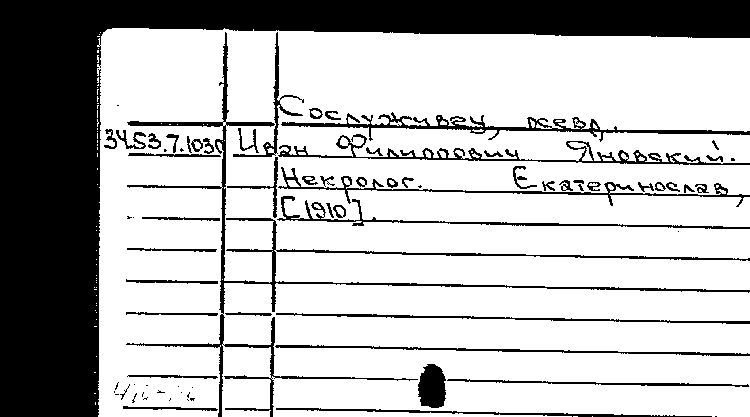 Сослуживец, псевд.
3453.7.1030 Иван Филиппович Яновский.
Некролог. Екатеринослав,
[1910].